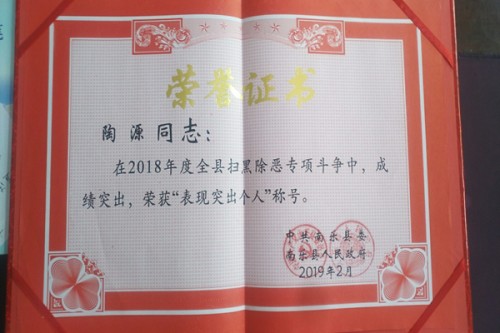 荣誉证书
陶源同志：
在2018年度全县扫黑除恶专项斗争中，成
绩突出，荣获“表现突出个人”称号。
中共南乐县委
南乐县人民政府
2019年2月